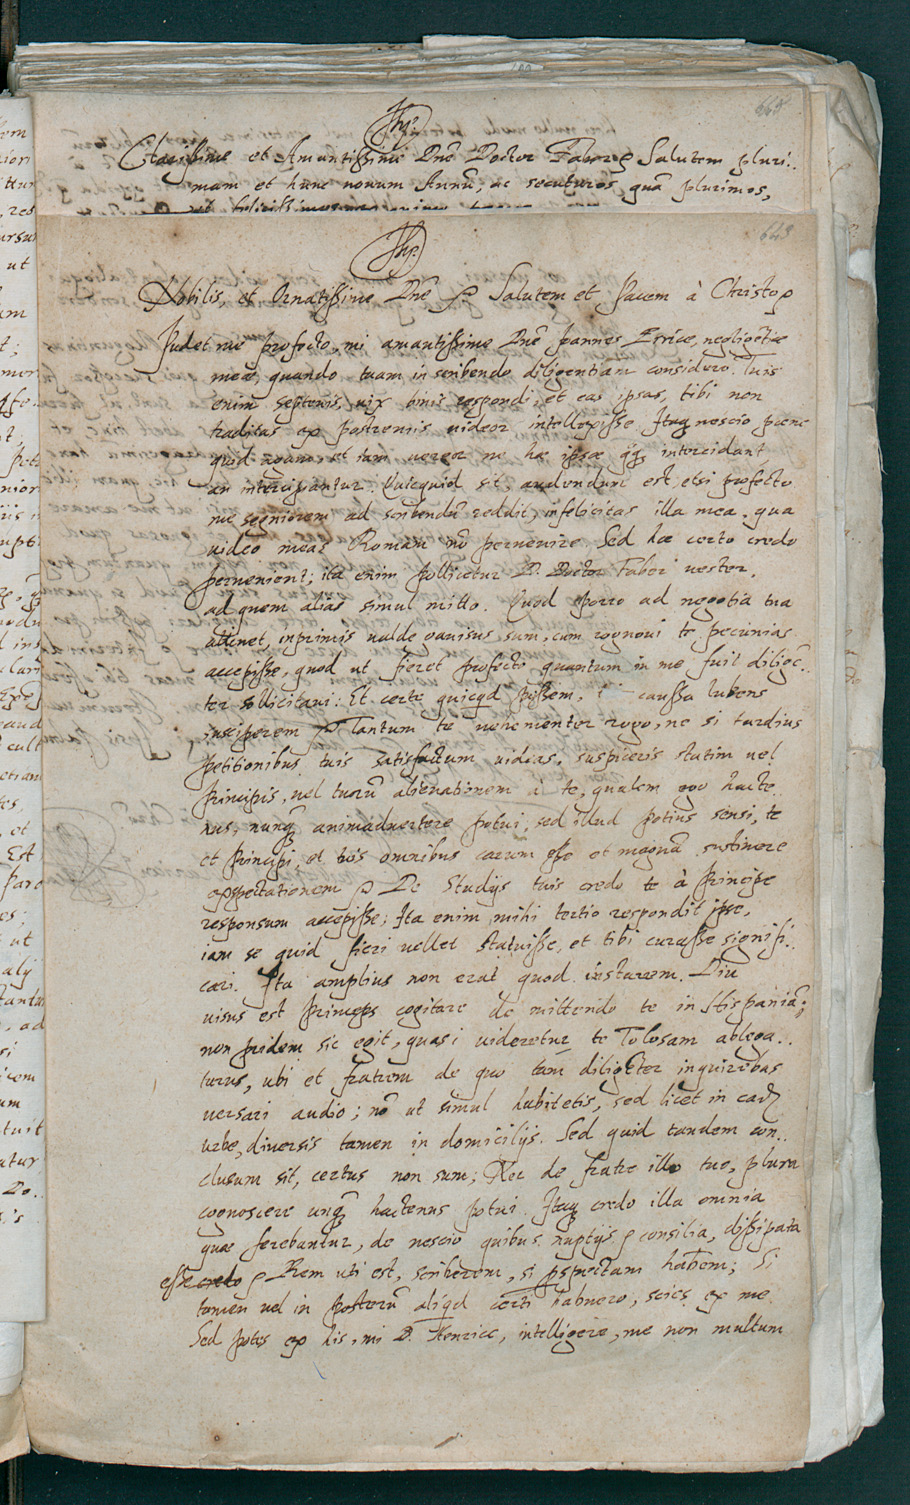 665
Jhs.
Clarissime et Amantissime Dne Doctor Faber ꝑ Salutem pluri..
mam et hunc nouum Annū, ac secuturos quā plurimos,
643
Jhs.
Nobilis, et Ornatissime Dne ꝑ Salutem et Pacem à Christo ꝑ
Pudet me profecto, mi amantissime Dne Joannes Errice, negligētiae
meae, quando tuam in scribendo diligentiam considero. Tuis
enim septenis, uix binis respondi, et eas ipsas, tibi non
traditas ex postremis uideor intellexisse. Itaq nescio paene
quid agam, et iam uereor ne hae ipsae q̄q intercidant
an intercipiantur. Quicquid sit audendum est, etsi profecto
me segniorem ad scribendū reddit, infelicitas illa mea, qua
uideo meas Romam nō peruenire. Sed hae certo credo
peruenient; ita enim pollicetur D. Doctor Faber uester,
ad quem alias simul mitto. Quod porro ad negotia tua
attinet, inprimis ualde gauisus sum, cum cognoui te pecunias
accepisse, quod ut fieret profecto quantum in me fuit diligē..
ter sollicitaui: Et certe quicqd possem, caussa lubens
susciperem ꝑ Tantum te uehementer rogo, ne si tardius
petitionibus tuis satisfactum uideas, suspiceris statim uel
Principis, uel tuorū alienationem à te, qualem ego hacte..
nus, nunq̄ animaduertere potui, sed illud potius sensi, te
et Principi et tuis omnibus carum esse et magnā sustinere
expectationem ꝑ De Studijs tuis credo te à Principe
responsum accepisse; Ita enim mihi tertio respondit ipse,
iam se quid fieri uellet statuisse, et tibi curasse signifi..
cari. Ita amplius non erat quod instarem. Diu
uisus est Princeps cogitare de mittendo te in Hispaniā;
non pridem sic egit, quasi uideretur te Tolosam ablega..
turus, ubi et fratrem de quo tam diligēter inquirebas
uersari audio; nō ut simul habitetis, sed licet in eadē
urbe, diuersis tamen in domicilijs. Sed quid tandem con..
clusum sit, certus non sum; Nec de fratre illo tuo, plura
cognoscere unq̄ hactenus potui. Itaq credo illa omnia
quae ferebantur, de nescio quibus nuptijs ꝑ consilia, dissipata
esse credo ꝑ Rem uti est, scriberem, si pspectam haberem; Si
tamen uel in posterū aliqd certi habuero, scies ex me.
Sed potes ex his, mi D. Henrice, intelligere, me non multum